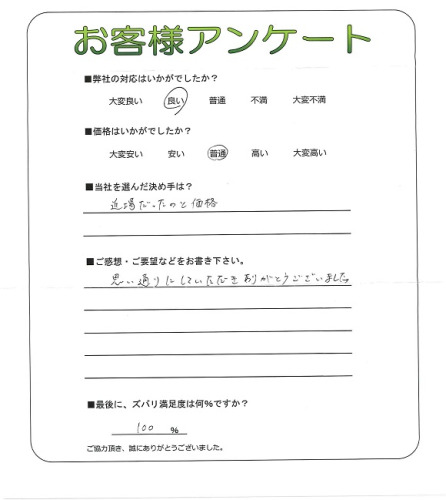 お客様アンケート
■弊社の対応はいかがでしたか？
大変良い 良い 普通 不満 大変不満
■価格はいかがでしたか？
大変安い 安い 普通 高い 大変高い
■当社を選んだ決め手は？
近場だったのと価格
■ご感想・ご要望などをお書き下さい。
思い通りにしていただきありがとうございました。
■最後に、ズバリ満足度は何％ですか？
100 ％
ご協力頂き、誠にありがとうございました。